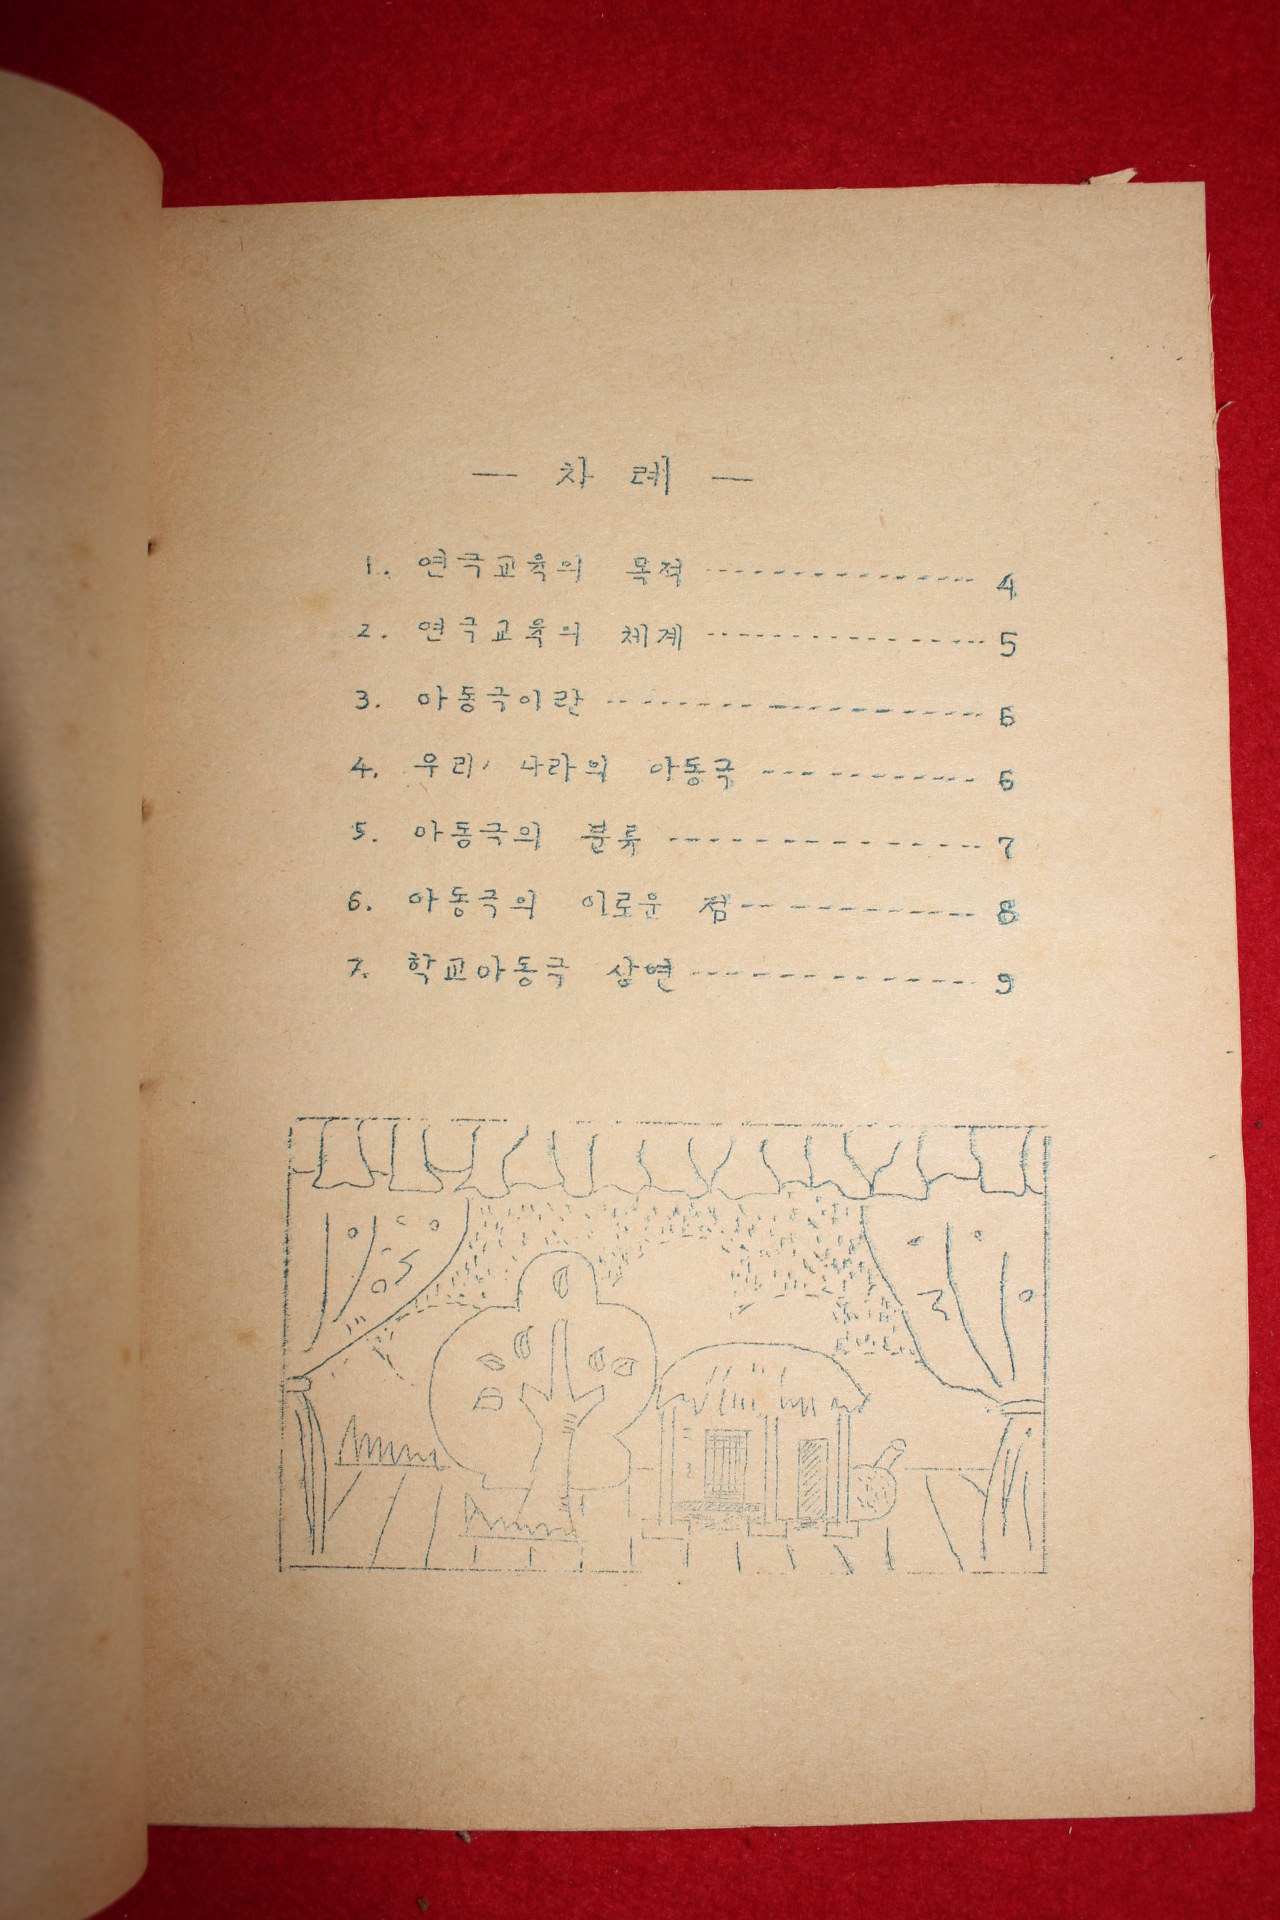 — 차 례 —
1. 연극교육의 목적 ------------ 4
2. 연극교육의 체계 ------------ 5
3. 아동극이란 ------------ 6
4. 우리 나라의 아동극 ------------ 6
5. 아동극의 분류 ------------ 7
6. 아동극의 이로운 점 ------------ 8
7. 학교아동극 상연 ------------ 9